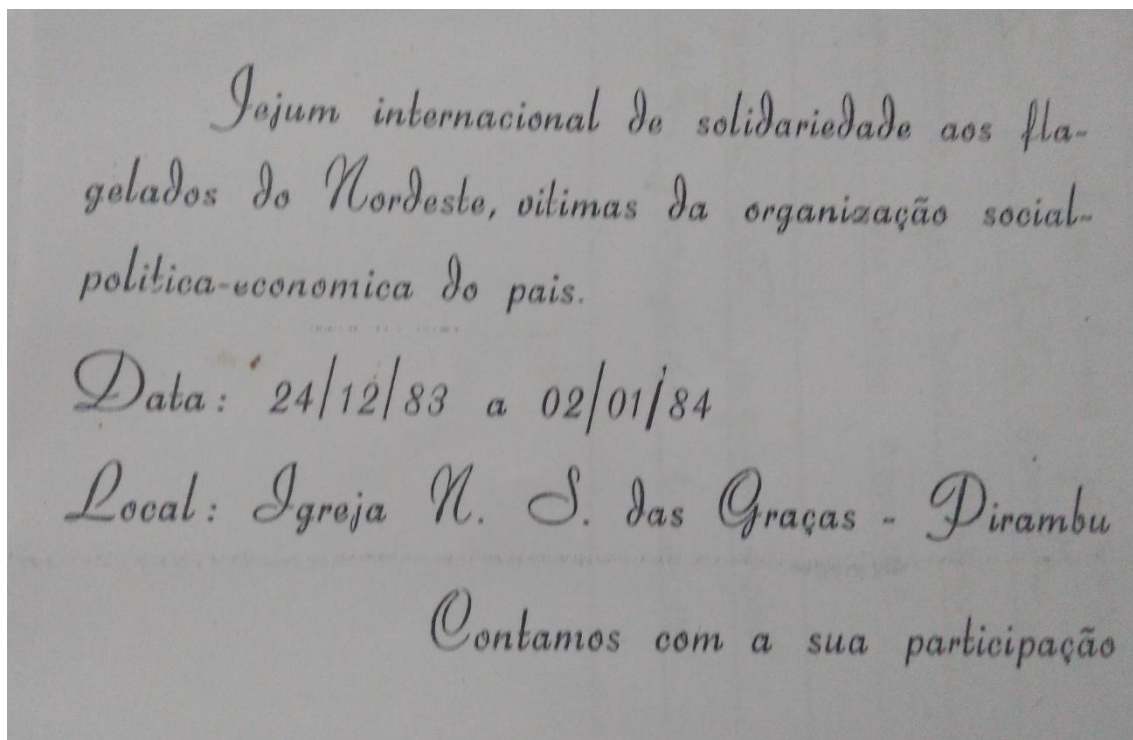 Jejum internacional de solidariedade aos fla-
gelados do Nordeste, vitimas da organização social-
politica-economica do pais.
Data: 24/12/83 a 02/01/84
Local: Igreja N. S. das Graças - Pirambu
Contamos com a sua participação